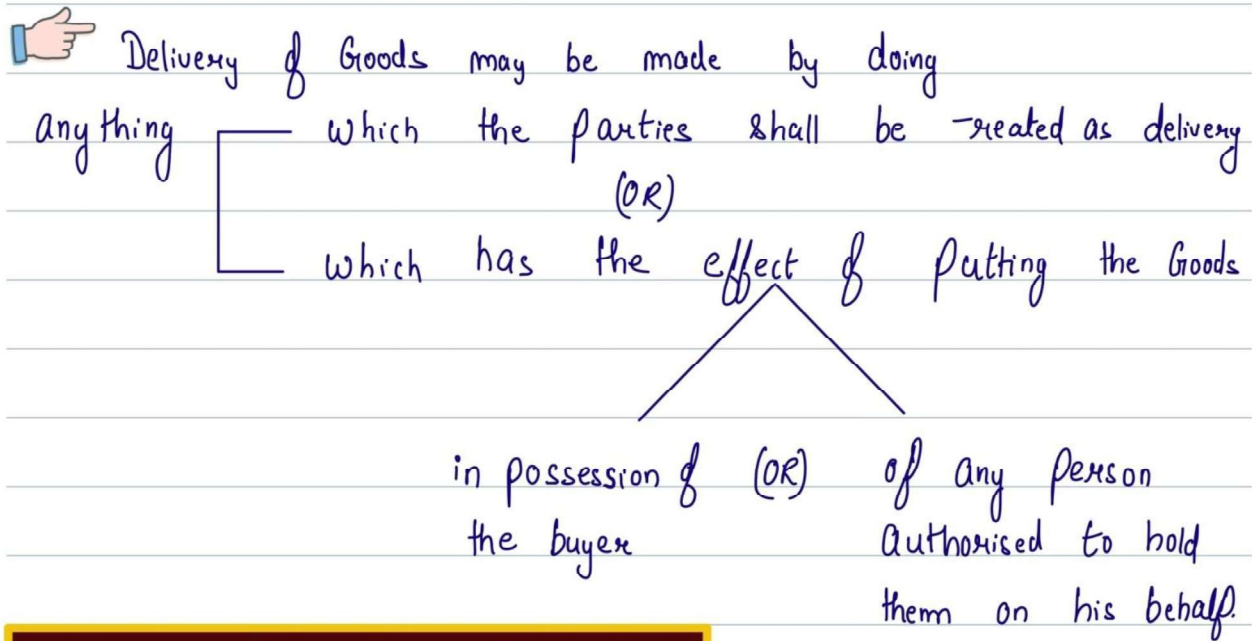 Delivery of Goods may be made by doing
any thing which the parties shall be treated as delivery
(OR)
which has the effect of Putting the Goods
in possession of (OR) of any person
the buyer authorised to hold
them on his behalf.